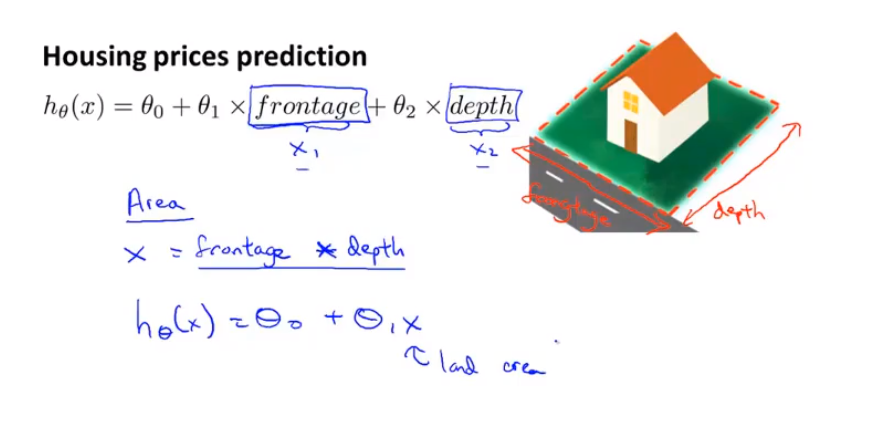 Housing prices prediction
hθ(x) = θ0 + θ1 × frontage + θ2 × depth
x1
x2
frontage
depth
Area
x = frontage * depth
hθ(x) = θ0 + θ1 x
land area